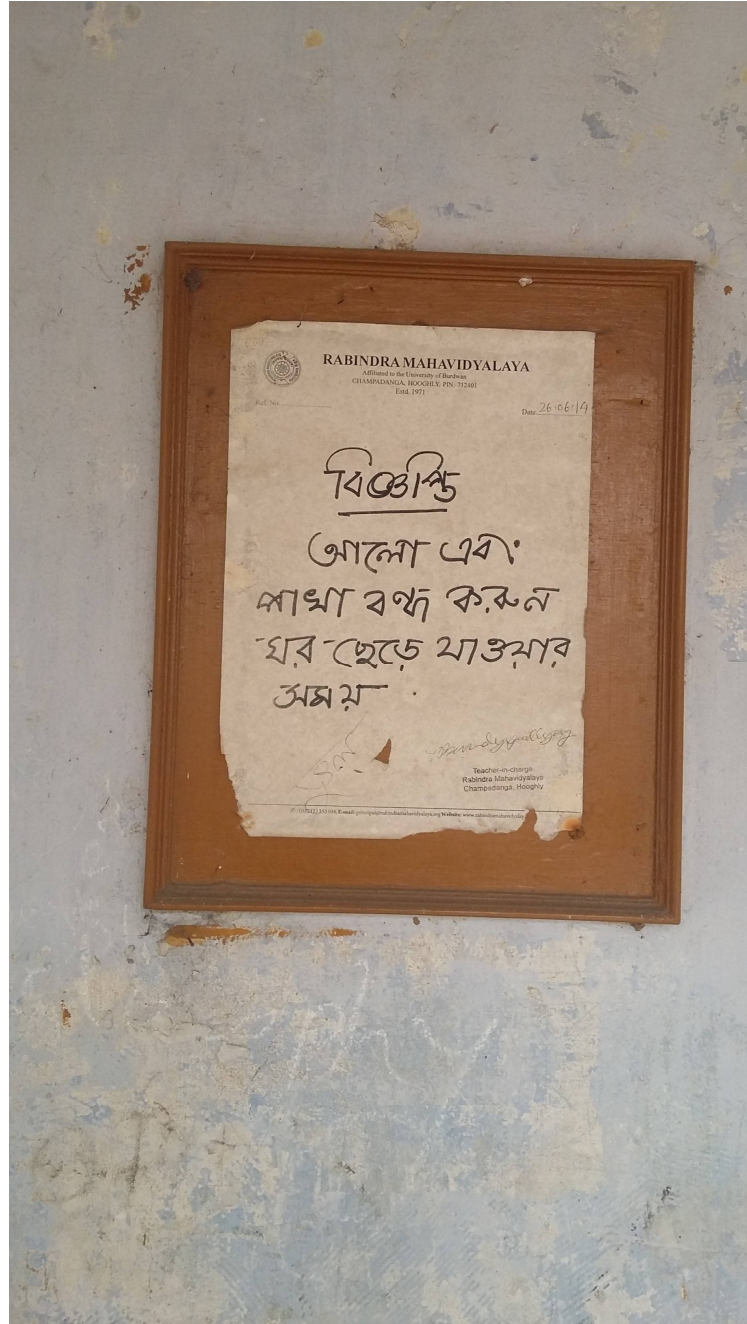 RABINDRA MAHAVIDYALAYA
Affiliated to the University of Burdwan
CHAMPADANGA, HOOGHLY, PIN- 712401
Estd. 1971
Ref. No.
Date 26.06.19
বিজ্ঞপ্তি
আলো এবং
পাখা বন্ধ করুন
ঘর ছেড়ে যাওয়ার
সময়
Teacher-in-charge
Rabindra Mahavidyalaya
Champadanga, Hooghly
E-mail: Website: